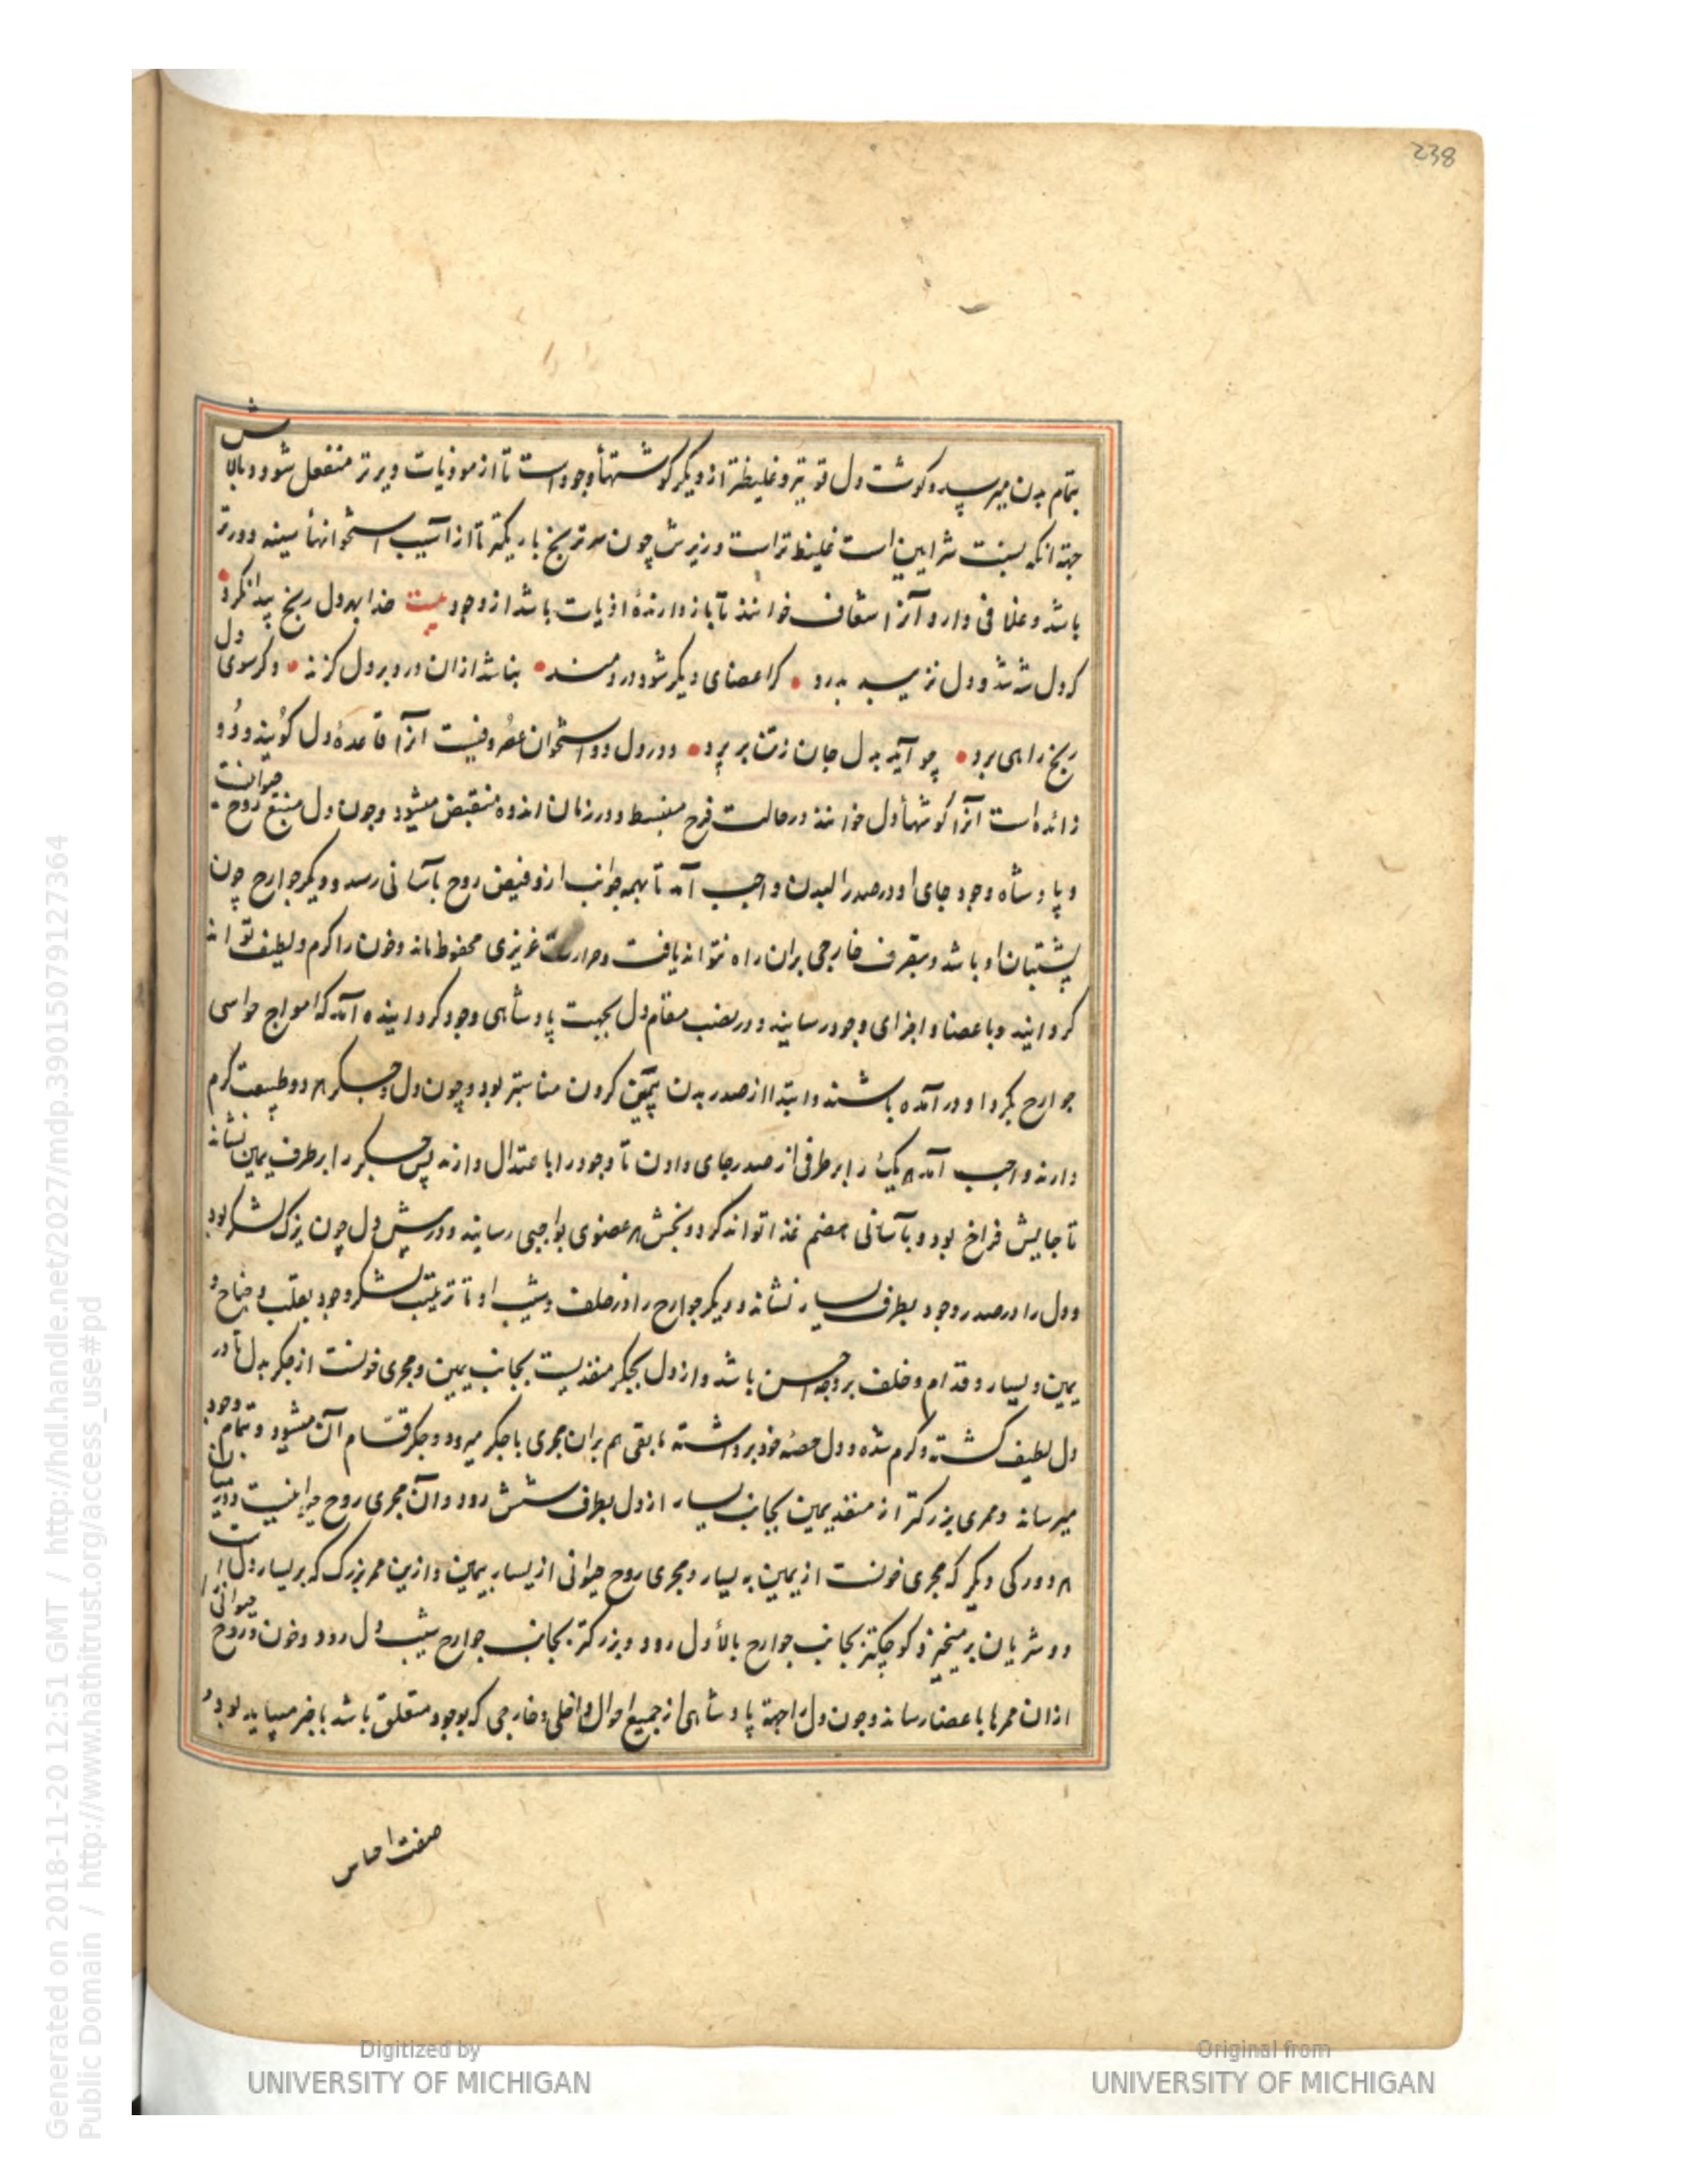 238
بتمام بدن میرسد وکوشت دل قویتر وغلیظتر از دیکر کوشتهأ وجود است تا از موذیات دیرتر منفعل شود وبالاش
جهة انکه بسنت شرایین است غلیظ تراست وزیرش چون سر ترنج باریکتر تا از آسیب استخوانهأ سینه دورتر
باشد وغلافی دارد وآنرا شغاف خوانند تا بازدارندهٔ اذیات باشد از وجود بیت خدا بهر دل رنج پیدا نکرد
که دل شه شد و دل نزیبد بدرد • کراعضای دیکر شود دردمند • بناشد ازان درد بر دل کزند • وکر سوی دل
رنج راهی برد • چو آید بدل جان زتن بر پرد • ودر دل دو استخوان غضروفیست انرا قاعدهٔ دل کویند ودو
زائده است انرا کوشهأ دل خوانند در حالت فرح منبسط ودر زمان اندوه منقبض میشود وچون دل منبع روح حیوانیست
و پادشاه وجود جای او در صدر البدن واجب آمد تا بهمه جوانب ازو فیض روح بآسانی رسد و دیکر جوارح چون
پشتیبان او باشد وبتصرف خارجی بران راه نتواند یافت وحرارت غریزی محفوظ ماند وخون را کرم ولطیف تواند
کردانید وباعضا واجزای وجود رسانید ودر نصب مقام دل بجهت پادشاهی وجود کردانیده آمد که امواج حواسی
جوارح بکرد او در آمده باشند وابتدا از صدر بدن تعیین کردن مناسبتر بود وچون دل وجکر هر دو طبیعت کرم
دارند واجب آمد هر یک را بر طرفی از صدر جای دادن تا وجود را باعتدال دارند پس جکر را بر طرف یمین نشاند
تا جایش فراخ بود وبآسانی هضم غذا تواند کرد و بخش هر عضوی بواجبی رسانید ودر پیش دل چون یزک لشکر بود
ودل را در صدر وجود بطرف یسار نشاند ودیکر جوارح را در خلف وشیب او تا ترتیب لشکر وجود بقلب وجناح و
یمین ویسار وقدام وخلف بر وجه احسن باشد واز دل بجکر منفذیست بجانب یمین ومجری خونست از جکر بدل تا در
دل لطیف کشته وکرم شده ودل حصهٔ خود برداشته مابقی هم بران مجری با جکر میرود وجکر قسام آن میشود وبتمام وجود
میرساند وممری بزرکتر از منفذ یمین بجانب یسار از دل بطرف شش رود وآن مجری روح حیوانیست
هر دو رکی دیکر که مجری خونست از یمین به یسار ومجری روح حیوانی از یسار بیمین وازین ممر بزرک که بر یسار دل است
دو شریان بر میخیزد کوچکتر بجانب جوارح بالأ دل رود وبزرکتر بجانب جوارح شیب دل رود وخون وروح حیوانی
ازان ممرها باعضا رساند وچون دل را جهة پادشاهی از جمیع احوال داخلی وخارجی که بوجود متعلق باشد با خبر میباید بود و
صفت احساس
Digitized by
UNIVERSITY OF MICHIGAN
Original from
UNIVERSITY OF MICHIGAN
Generated on 2018-11-20 12:51 GMT / http://hdl.handle.net/2027/mdp.39015079127364
Public Domain / http://www.hathitrust.org/access_use#pd